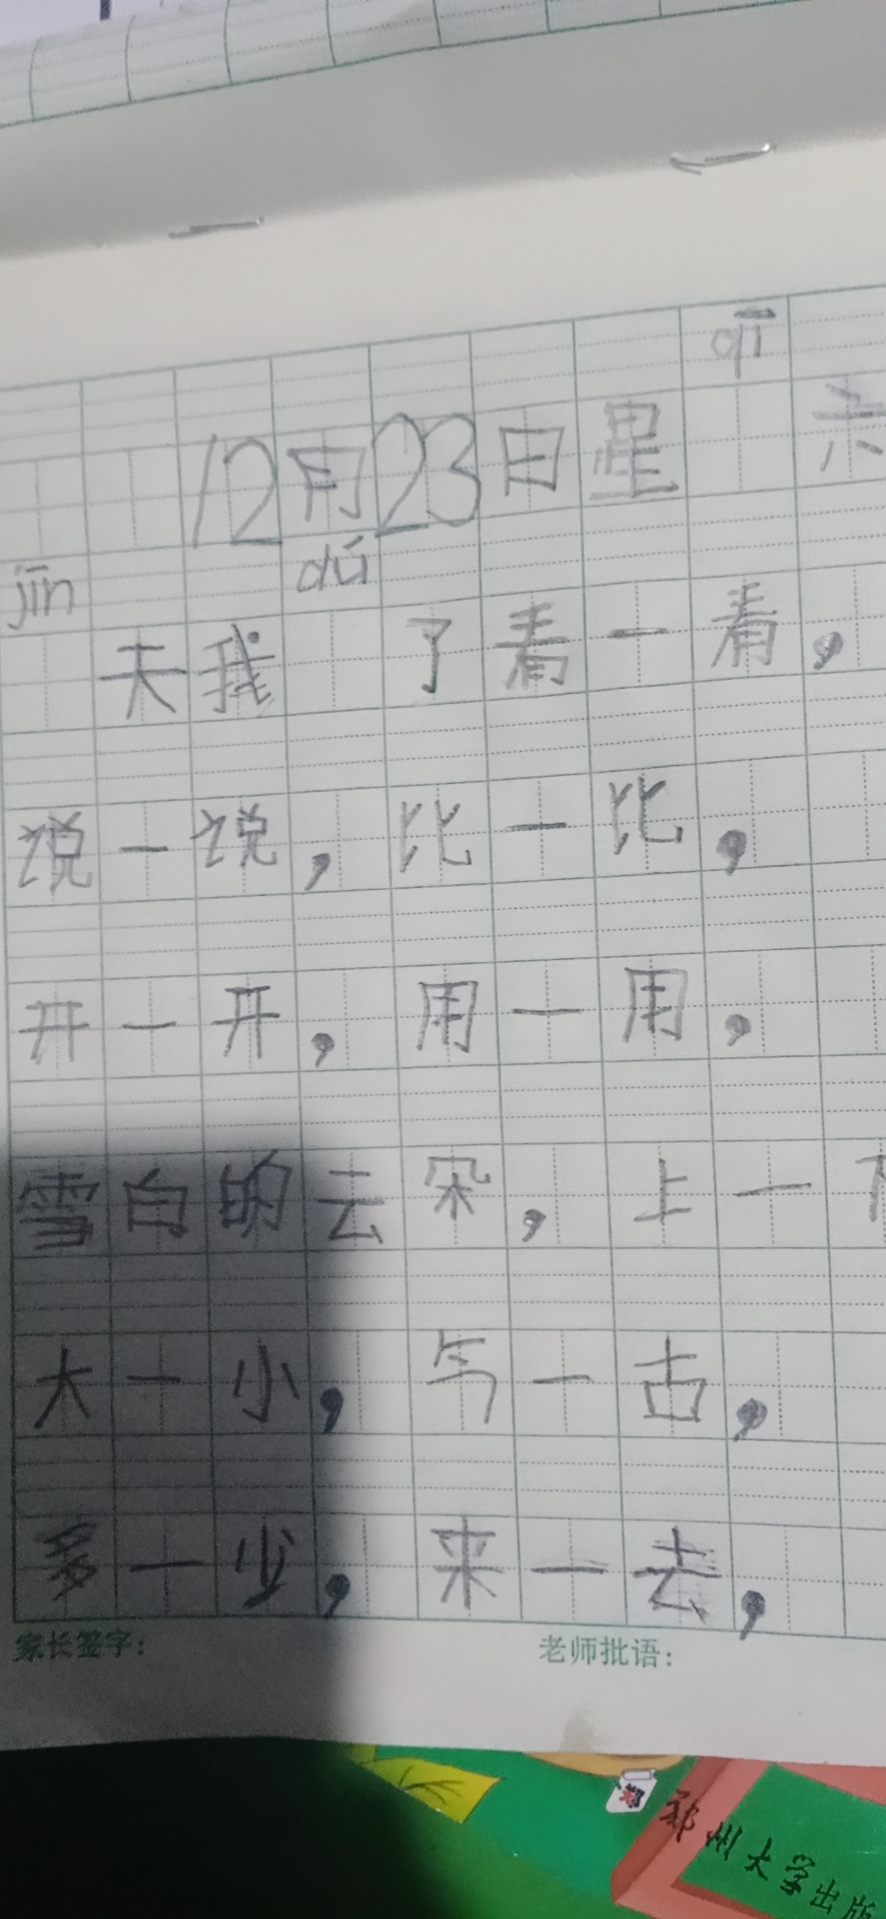 qī
12月23日星 六
jīn dú
天我 了看一看，
说一说，比一比，
开一开，用一用，
雪白的云朵，上一下
大一小，午一古，
多一少，来一去，
家长签字： 老师批语：
郑州大学出版